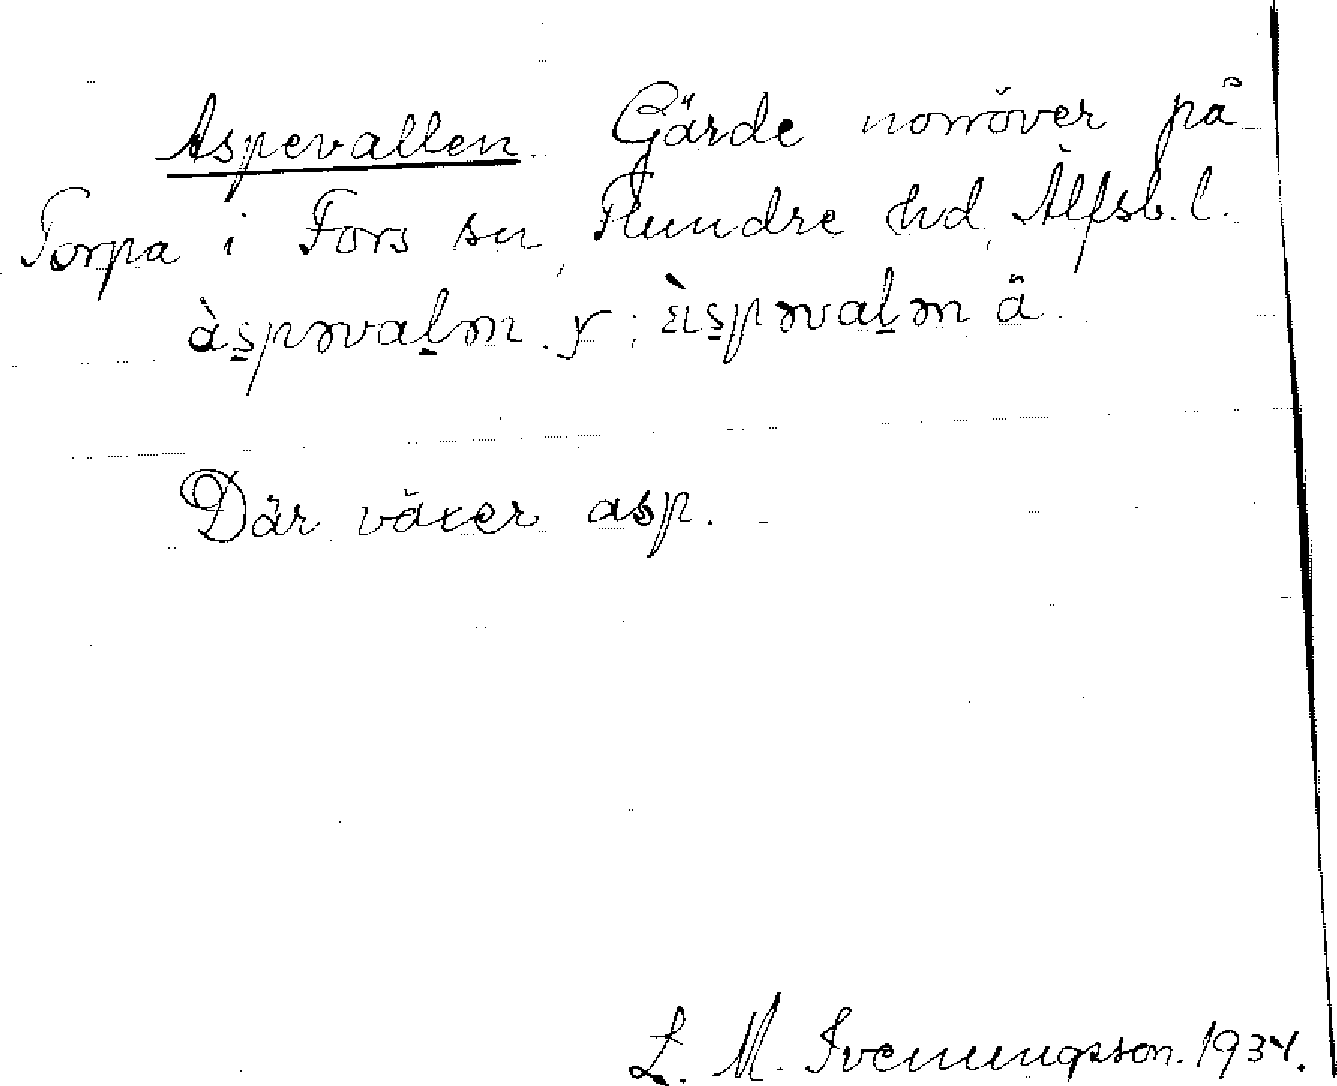 Aspevallen. Gärde norröver på
Torpa i Fors sn, Flundre hd, Älfsb. l.
àspəvalən. 
Där växer asp.
L. M. Svenungsson. 1934.